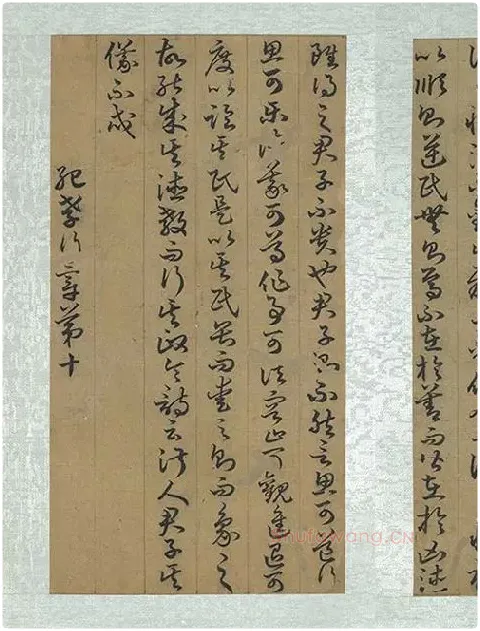 以順則逆民無則焉不在於善而皆在於凶德
雖得之君子不貴也君子則不然言思可道行
思可樂德義可尊作事可法容止可觀進退可
度以臨其民是以其民畏而愛之則而象之
故能成其德教而行其政令詩云淑人君子其
儀不忒
紀孝行章第十
shufawang.CN